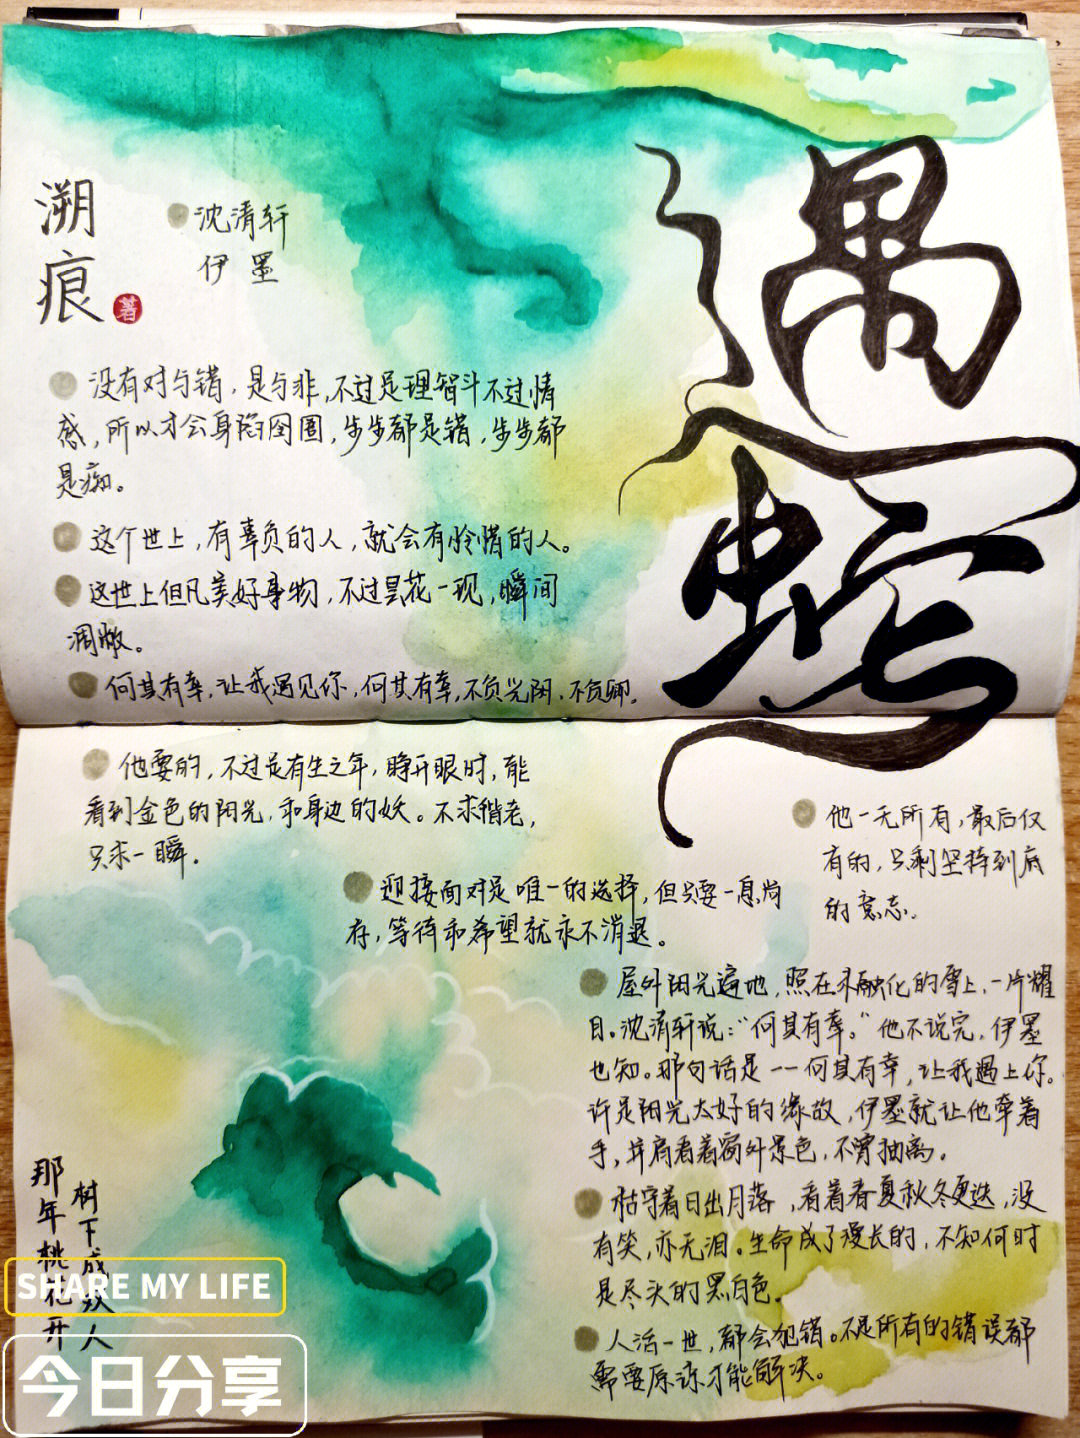 遇蛇
溯痕
著
沈清轩
伊墨
没有对与错，是与非，不过是理智斗不过情
感，所以才会身陷囹圄，步步都是错，步步都
是痴。
这个世上，有辜负的人，就会有怜惜的人。
这世上但凡美好事物，不过昙花一现，瞬间
凋敝。
何其有幸，让我遇见你，何其有幸，不负光阴、不负卿。
他要的，不过是有生之年，睁开眼时，能
看到金色的阳光，和身边的妖。不求偕老，
只求一瞬．
他一无所有，最后仅
有的，只剩坚持到底
的意志．
迎接面对是唯一的选择，但只要一息尚
存，等待和希望就永不消退。
屋外阳光遍地，照在未融化的雪上，一片耀
目。沈清轩说：“何其有幸。”他不说完，伊墨
也知。那句话是——何其有幸，让我遇上你。
许是阳光太好的缘故，伊墨就让他牵着
手，并肩看着窗外景色，不曾抽离。
枯守着日出月落，看着春夏秋冬更迭，没
有笑，亦无泪。生命成了漫长的，不知何时
是尽头的黑白色。
人活一世，都会犯错。不是所有的错误都
需要原谅才能解决。
那年桃花开
树下成双人
SHARE MY LIFE
今日分享